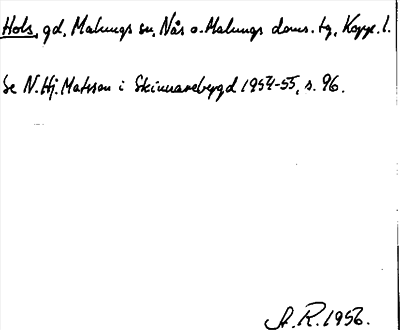 Hols, gd, Malungs sn, Nås o. Malungs doms. tg, Kopp. l.
Se N. Hj. Matsson i Skinnarebygd 1954-55, s. 96.
A. R. 1956.